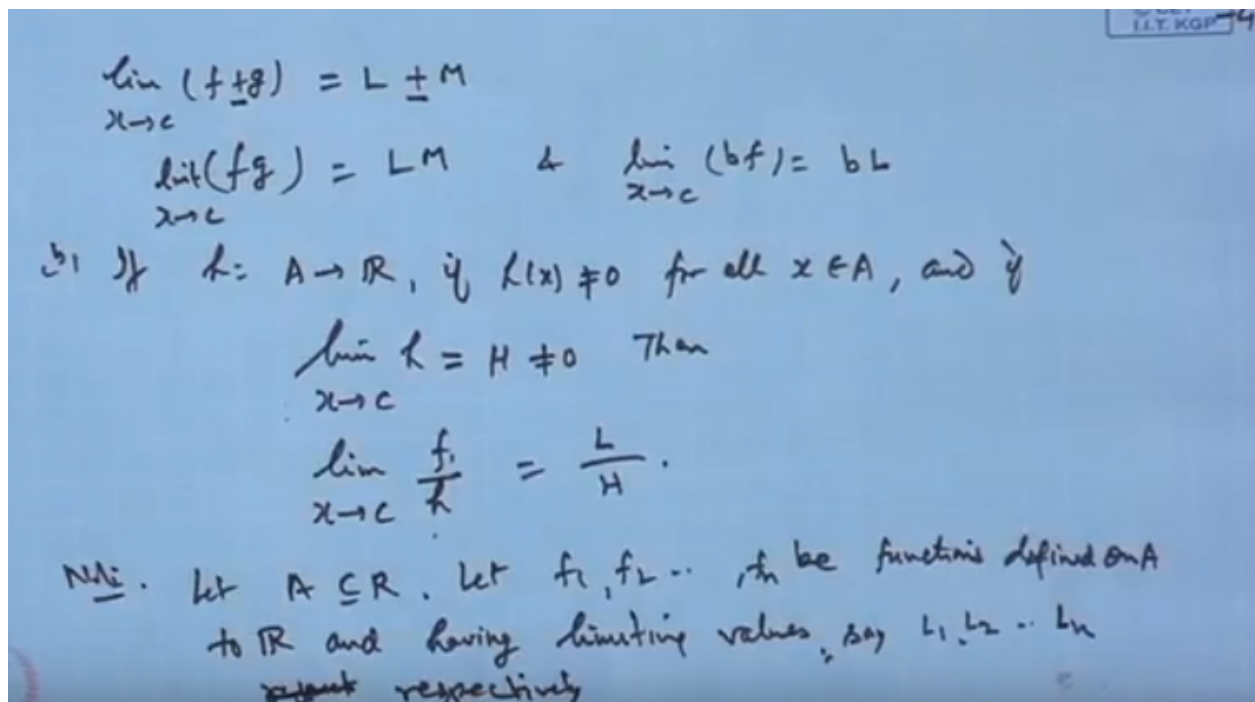 I.I.T. KGP
lim (f ± g) = L ± M
x→c
limit (fg) = LM & lim (bf) = bL
x→c x→c
If h: A → ℝ, if h(x) ≠ 0 for all x ∈ A, and if
lim h = H ≠ 0 Then
x→c
lim f/h = L/H.
x→c
Note. Let A ⊆ R. Let f1, f2 .. , fn be functions defined on A
to ℝ and having limiting values, say L1, L2 .. Ln
respectively